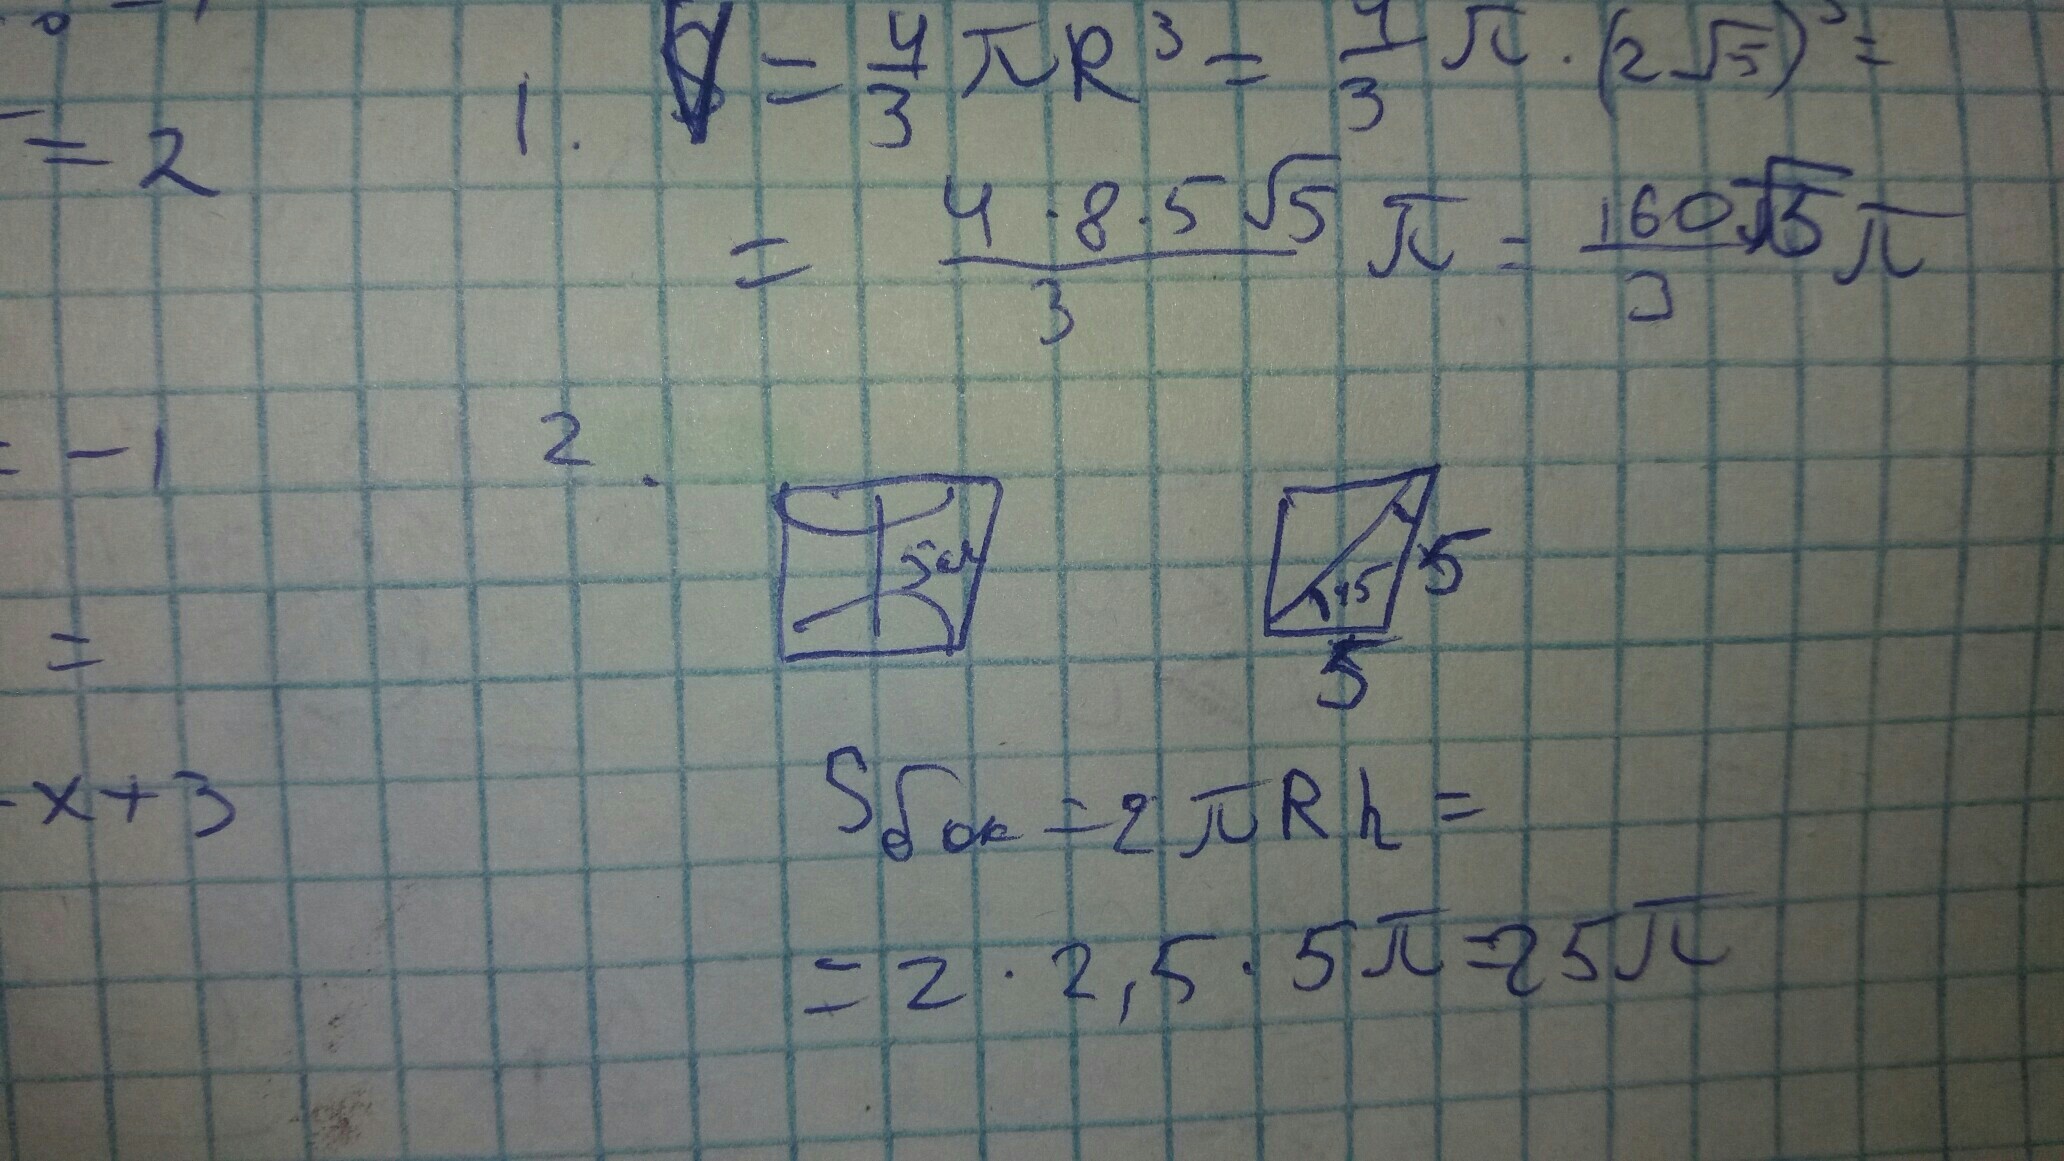 = 2
1. V = 4/3 πR³ = 4/3 π · (2√5)³ =
= 4·8·5√5/3 π = 160√5/3 π
= -1
2.
5см
45
5
5
=
-x+3
Sбок = 2πRh =
= 2 · 2,5 · 5π = 25π